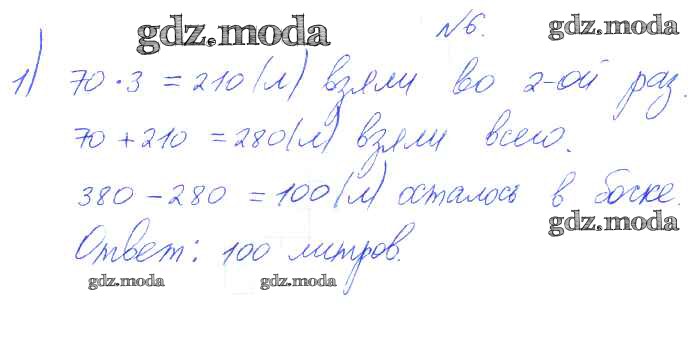 gdz.moda
№6.
gdz.moda
1) 70 · 3 = 210 (л) взяли во 2-ой раз.
70 + 210 = 280 (л) взяли всего.
380 - 280 = 100 (л) осталось в бочке.
gdz.moda
Ответ: 100 литров.
gdz.moda
gdz.moda